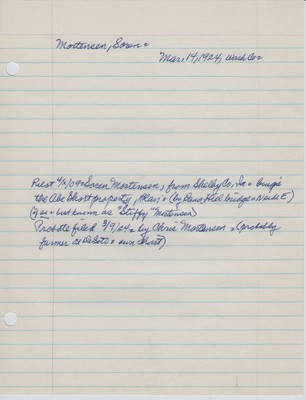 Mortensen, Soren =
Mar, 14, 1924, Wash Co=
Pilot 4/2/09 = Soren Mortensen, from Shelby Co, Ia = buys
the Abe Short property, (by Dana Hill bridge =
= best known as "Stiffy" Mortensen)
Probate filed 3/9/24 = by Chris Mortensen = (probably
farmer at DeSoto = own chart)